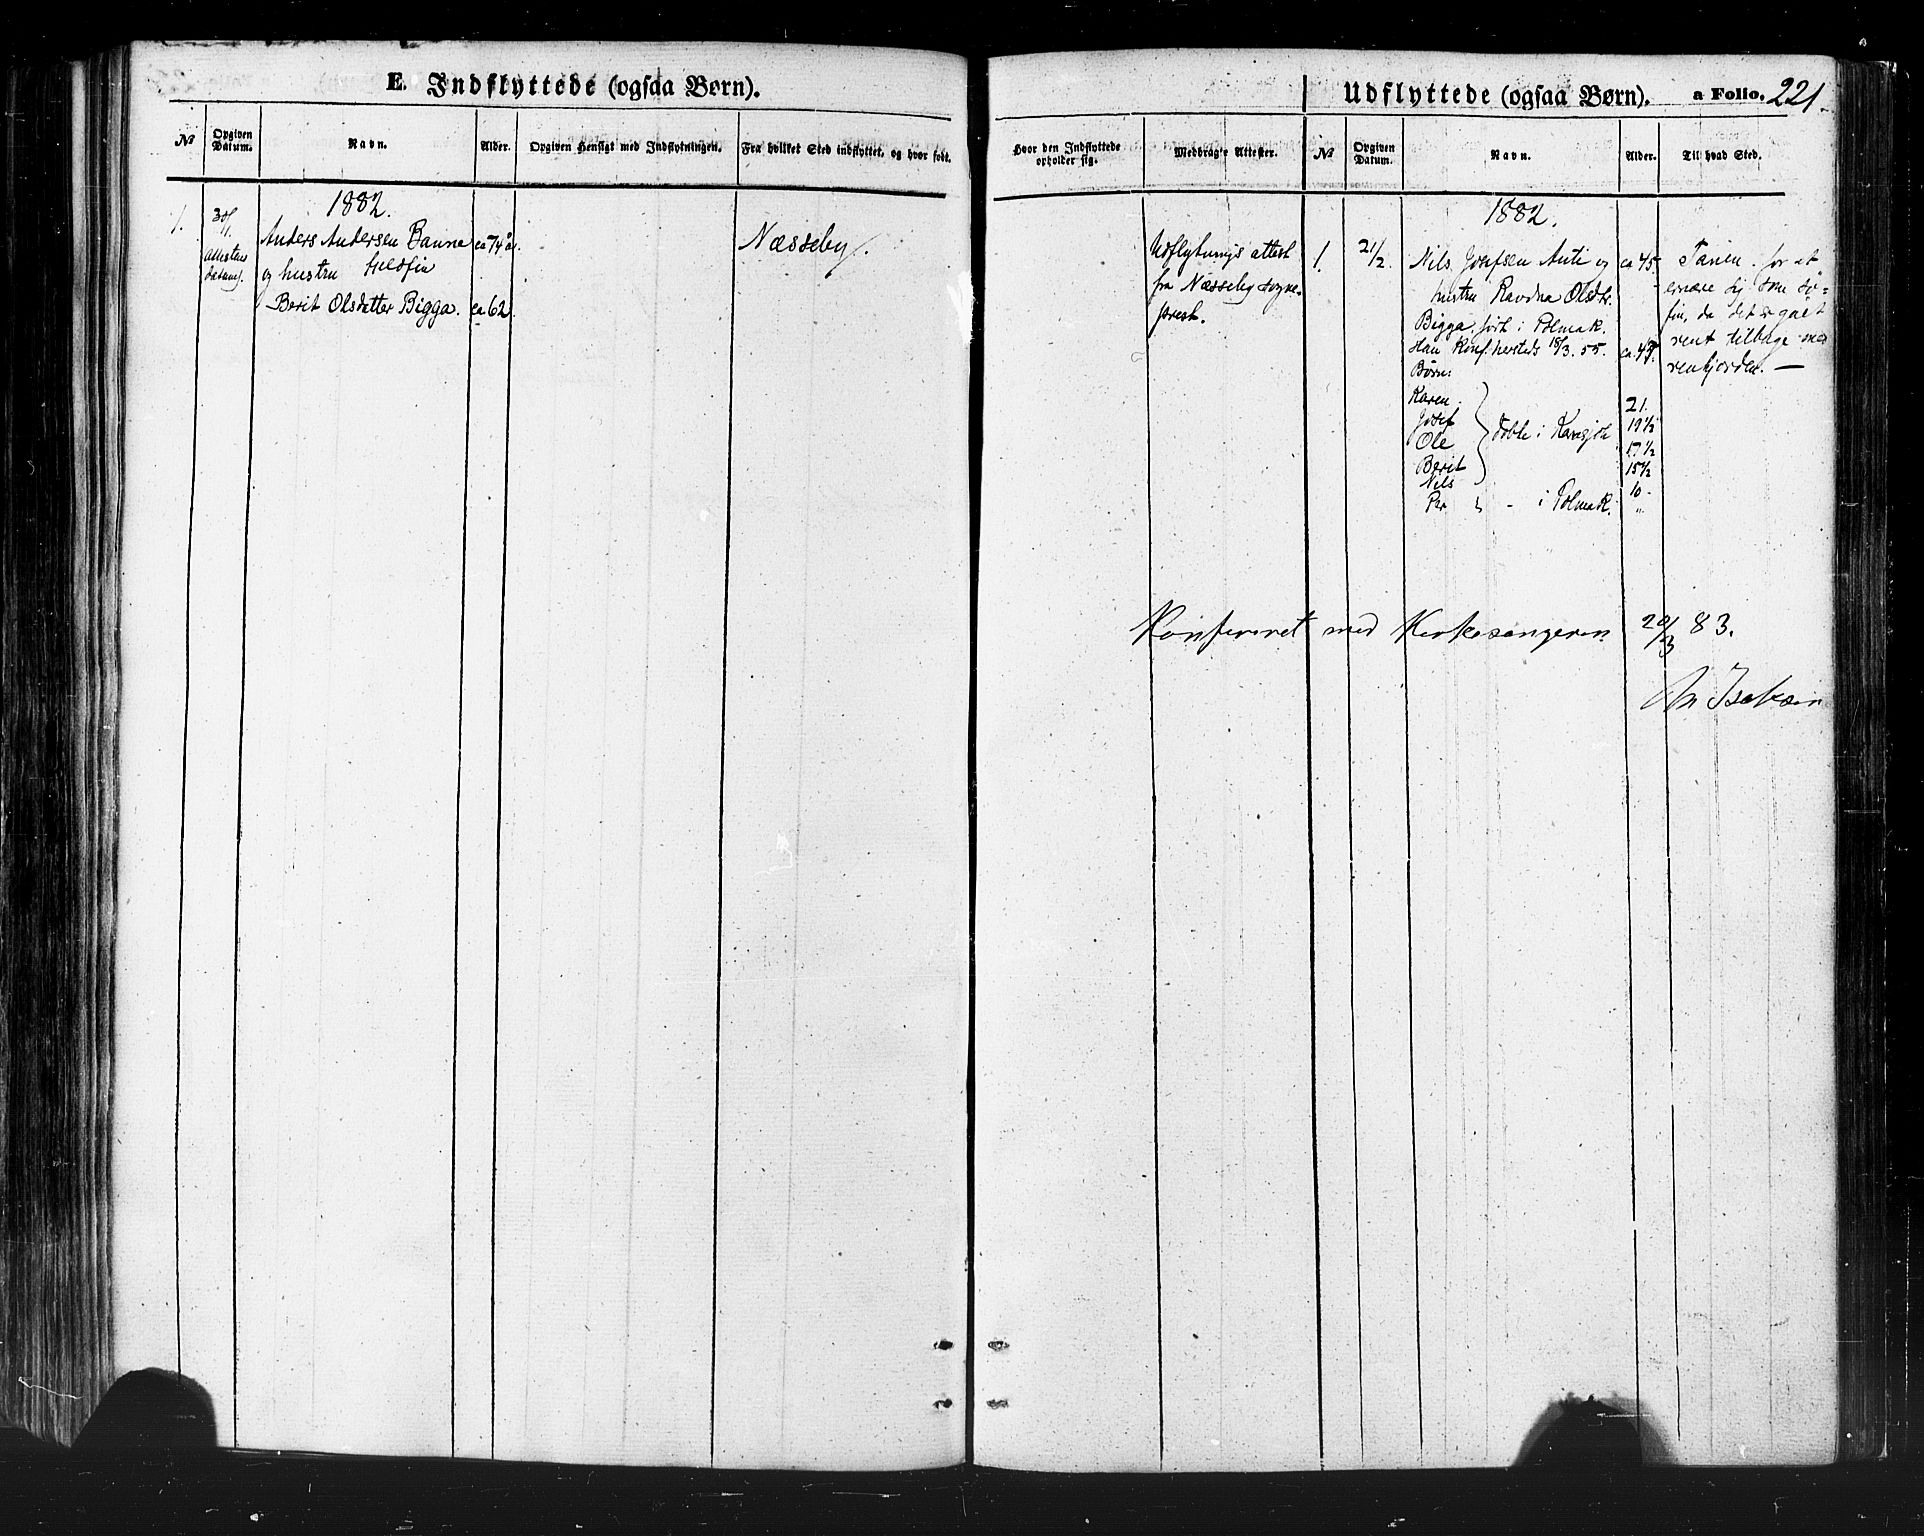 E. Indflyttede (ogsaa Børn).
№
Opgiven Datum.
Navn.
Alder.
Opgiven Hensigt med Indflytningen.
Fra hvilket Sted indflyttet, og hvor født.
1882.
1.
Attestens
datum.
Anders Andersen Banne
ca 74 år.
og hustru fjeldfin
Berit Olsdatter Bigga.
ca 62
Næsseby.
Udflyttede (ogsaa Børn).
a Folio. 221.
Hvor den Indflyttede opholder sig.
Medbragte Attester.
№
Opgiven Datum.
Navn.
Alder.
Til hvad Sted.
Udflytnings attest
fra Næsseby sogne-
prest.
1882.
1.
21/2.
Nils Josefsen Anti og
ca 45
hustru Ravdna Olsdtr.
Bigga, født i Polmak.
Han konf. hersteds 18/3. 55.
ca. 43.
Børn:
Karen.
21.
Josef
19 1/2
Ole
døbte i Karasjok
17 1/2
Berit
15 1/2
Nils
10
Per - i Polmak.
"
Tanen. for at
ernære sig som sø-
fin, da det er gaaet
rent tilbage med
renhjorden. —
Konfereret med Kirkesangeren 20/3 83.
Isaksen